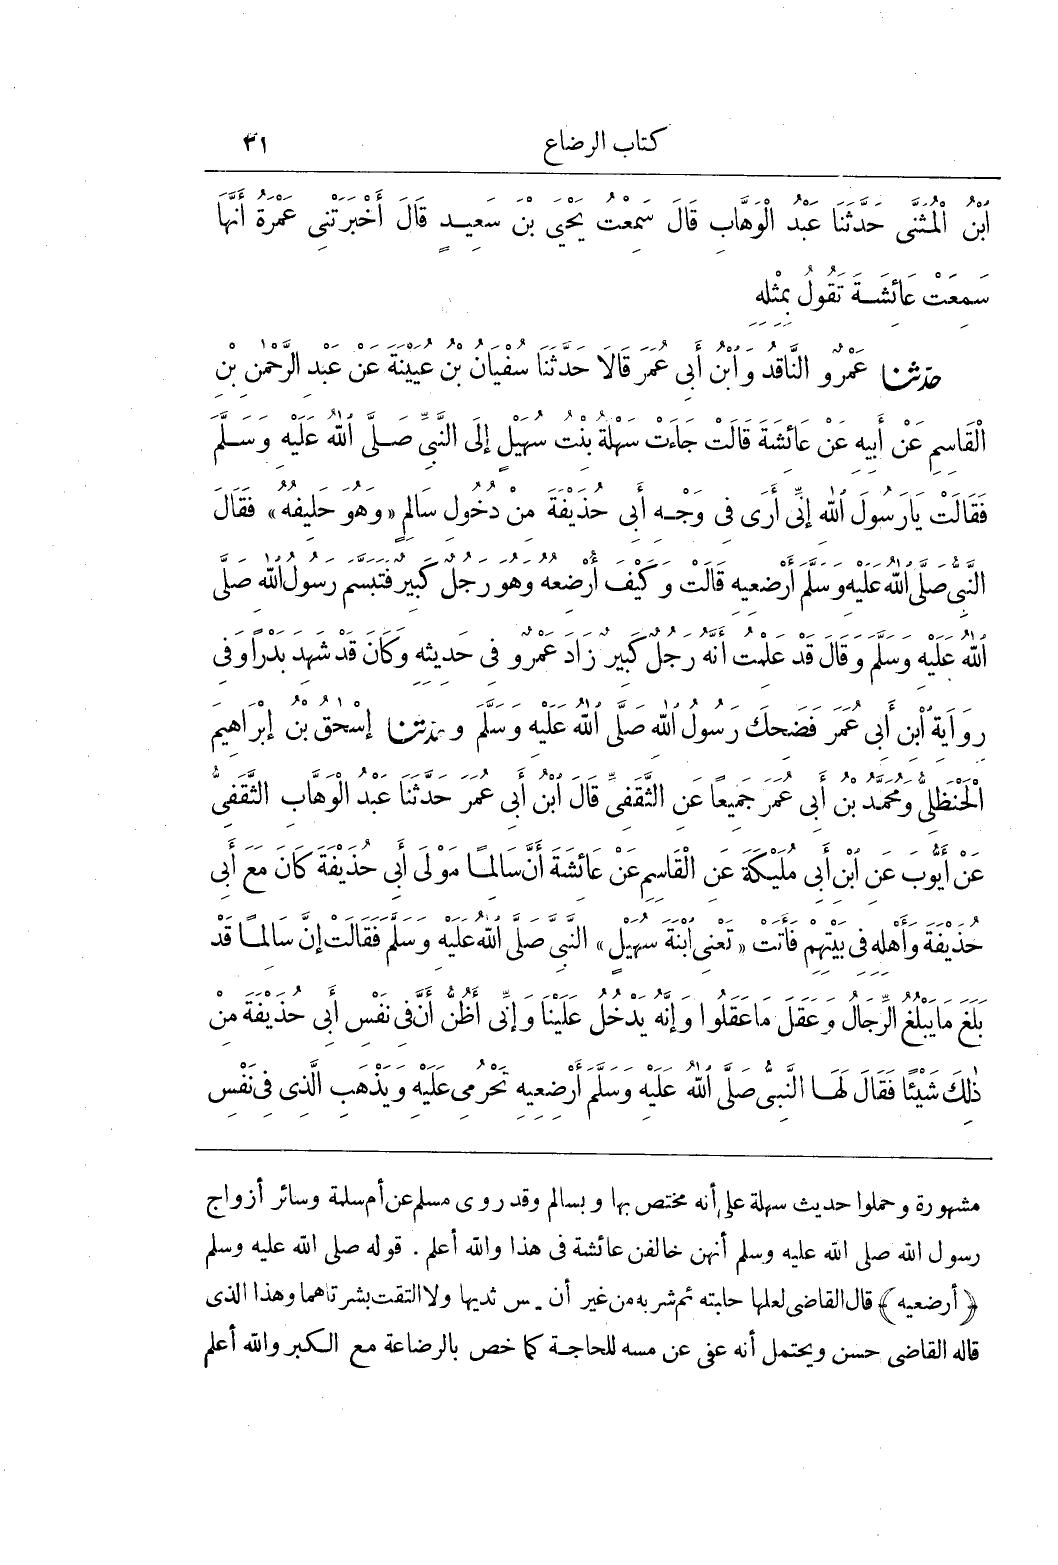 كتاب الرضاع ٣١
ابْنُ الْمُثَنَّى حَدَّثَنَا عَبْدُ الْوَهَّابِ قَالَ سَمِعْتُ يَحْيَى بْنَ سَعِيدٍ قَالَ أَخْبَرَتْنِى عَمْرَةُ أَنَّهَا
سَمِعَتْ عَائِشَةَ تَقُولُ بِمِثْلِهِ
حدثنا عَمْرٌو النَّاقِدُ وَابْنُ أَبِى عُمَرَ قَالَا حَدَّثَنَا سُفْيَانُ بْنُ عُيَيْنَةَ عَنْ عَبْدِ الرَّحْمٰنِ بْنِ
الْقَاسِمِ عَنْ أَبِيهِ عَنْ عَائِشَةَ قَالَتْ جَاءَتْ سَهْلَةُ بِنْتُ سُهَيْلٍ إِلَى النَّبِىِّ صَلَّى اللهُ عَلَيْهِ وَسَلَّمَ
فَقَالَتْ يَارَسُولَ اللهِ إِنِّى أَرَى فِى وَجْهِ أَبِى حُذَيْفَةَ مِنْ دُخُولِ سَالِمٍ «وَهُوَ حَلِيفُهُ» فَقَالَ
النَّبِىُّ صَلَّى اللهُ عَلَيْهِ وَسَلَّمَ أَرْضِعِيهِ قَالَتْ وَكَيْفَ أُرْضِعُهُ وَهُوَ رَجُلٌ كَبِيرٌ فَتَبَسَّمَ رَسُولُ اللهِ صَلَّى
اللهُ عَلَيْهِ وَسَلَّمَ وَقَالَ قَدْ عَلِمْتُ أَنَّهُ رَجُلٌ كَبِيرٌ زَادَ عَمْرٌو فِى حَدِيثِهِ وَكَانَ قَدْ شَهِدَ بَدْرًا وَفِى
رِوَايَةِ ابْنِ أَبِى عُمَرَ فَضَحِكَ رَسُولُ اللهِ صَلَّى اللهُ عَلَيْهِ وَسَلَّمَ وحدثنا إِسْحٰقُ بْنُ إِبْرَاهِيمَ
الْحَنْظَلِىُّ وَمُحَمَّدُ بْنُ أَبِى عُمَرَ جَمِيعًا عَنِ الثَّقَفِىِّ قَالَ ابْنُ أَبِى عُمَرَ حَدَّثَنَا عَبْدُ الْوَهَّابِ الثَّقَفِىُّ
عَنْ أَيُّوبَ عَنِ ابْنِ أَبِى مُلَيْكَةَ عَنِ الْقَاسِمِ عَنْ عَائِشَةَ أَنَّ سَالِمًا مَوْلَى أَبِى حُذَيْفَةَ كَانَ مَعَ أَبِى
حُذَيْفَةَ وَأَهْلِهِ فِى بَيْتِهِمْ فَأَتَتْ «تَعْنِى ابْنَةَ سُهَيْلٍ» النَّبِىَّ صَلَّى اللهُ عَلَيْهِ وَسَلَّمَ فَقَالَتْ إِنَّ سَالِمًا قَدْ
بَلَغَ مَا يَبْلُغُ الرِّجَالُ وَعَقَلَ مَا عَقَلُوا وَإِنَّهُ يَدْخُلُ عَلَيْنَا وَإِنِّى أَظُنُّ أَنَّ فِى نَفْسِ أَبِى حُذَيْفَةَ مِنْ
ذٰلِكَ شَيْئًا فَقَالَ لَهَا النَّبِىُّ صَلَّى اللهُ عَلَيْهِ وَسَلَّمَ أَرْضِعِيهِ تَحْرُمِى عَلَيْهِ وَيَذْهَبِ الَّذِى فِى نَفْسِ
مشهورة وحملوا حديث سهلة على أنه مختص بها وبسالم وقد روى مسلم عن أم سلمة وسائر أزواج
رسول الله صلى الله عليه وسلم أنهن خالفن عائشة فى هذا والله أعلم . قوله صلى الله عليه وسلم
﴿أرضعيه﴾ قال القاضى لعلها حلبته ثم شربه من غير أن يمس ثديها ولا التقت بشرتاهما وهذا الذى
قاله القاضى حسن ويحتمل أنه عفى عن مسه للحاجة كما خص بالرضاعة مع الكبر والله أعلم